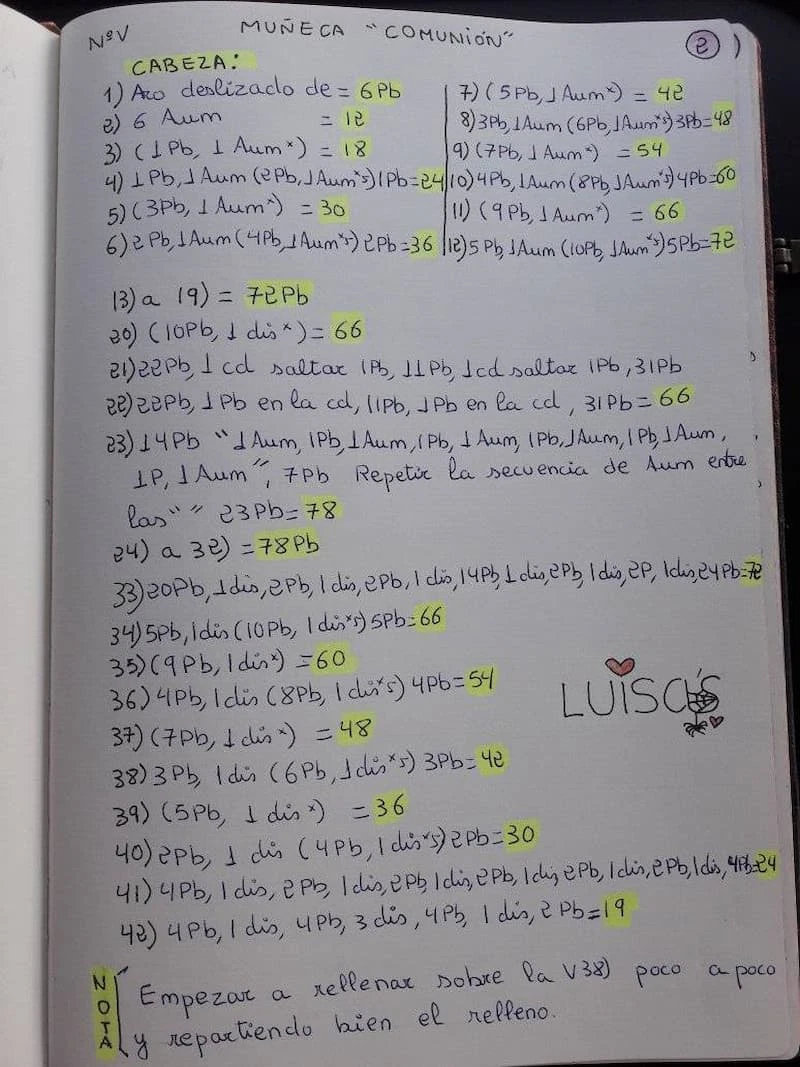 NºV MUÑECA "COMUNIÓN" 2
CABEZA:
1) Aro deslizado de = 6Pb
2) 6 Aum = 12
3) (1Pb, 1 Aum*) = 18
4) 1Pb, 1Aum (2Pb, 1Aum*5) 1Pb=24
5) (3Pb, 1Aum*) = 30
6) 2Pb, 1Aum (4Pb, 1Aum*5) 2Pb=36
7) (5Pb, 1Aum*) = 42
8) 3Pb, 1Aum (6Pb, 1Aum*5) 3Pb=48
9) (7Pb, 1Aum*) = 54
10) 4Pb, 1Aum (8Pb, 1Aum*5) 4Pb=60
11) (9Pb, 1Aum*) = 66
12) 5Pb, 1Aum (10Pb, 1Aum*5) 5Pb=72
13) a 19) = 72Pb
20) (10Pb, 1 dis*) = 66
21) 22Pb, 1 cd saltar 1Pb, 11Pb, 1cd saltar 1Pb, 31Pb
22) 22Pb, 1Pb en la cd, 11Pb, 1Pb en la cd, 31Pb = 66
23) 14Pb "1Aum, 1Pb, 1Aum, 1Pb, 1Aum, 1Pb, 1Aum, 1Pb, 1Aum,
1P, 1Aum", 7Pb Repetir la secuencia de Aum entre
las " " 23Pb=78
24) a 32) = 78Pb
33) 20Pb, 1dis, 2Pb, 1dis, 2Pb, 1dis, 14Pb, 1dis, 2Pb, 1dis, 2P, 1dis, 24Pb=72
34) 5Pb, 1dis (10Pb, 1dis*5) 5Pb=66
35) (9Pb, 1dis*) = 60
36) 4Pb, 1dis (8Pb, 1dis*5) 4Pb=54
37) (7Pb, 1dis*) = 48
38) 3Pb, 1dis (6Pb, 1dis*5) 3Pb=42
39) (5Pb, 1dis*) = 36
40) 2Pb, 1 dis (4Pb, 1dis*5) 2Pb=30
41) 4Pb, 1dis, 2Pb, 1dis, 2Pb, 1dis, 2Pb, 1dis, 2Pb, 1dis, 2Pb, 1dis, 4Pb=24
42) 4Pb, 1dis, 4Pb, 3dis, 4Pb, 1dis, 2Pb=19
LUISA'S
NOTA
Empezar a rellenar sobre la V38) poco a poco
y repartiendo bien el relleno.